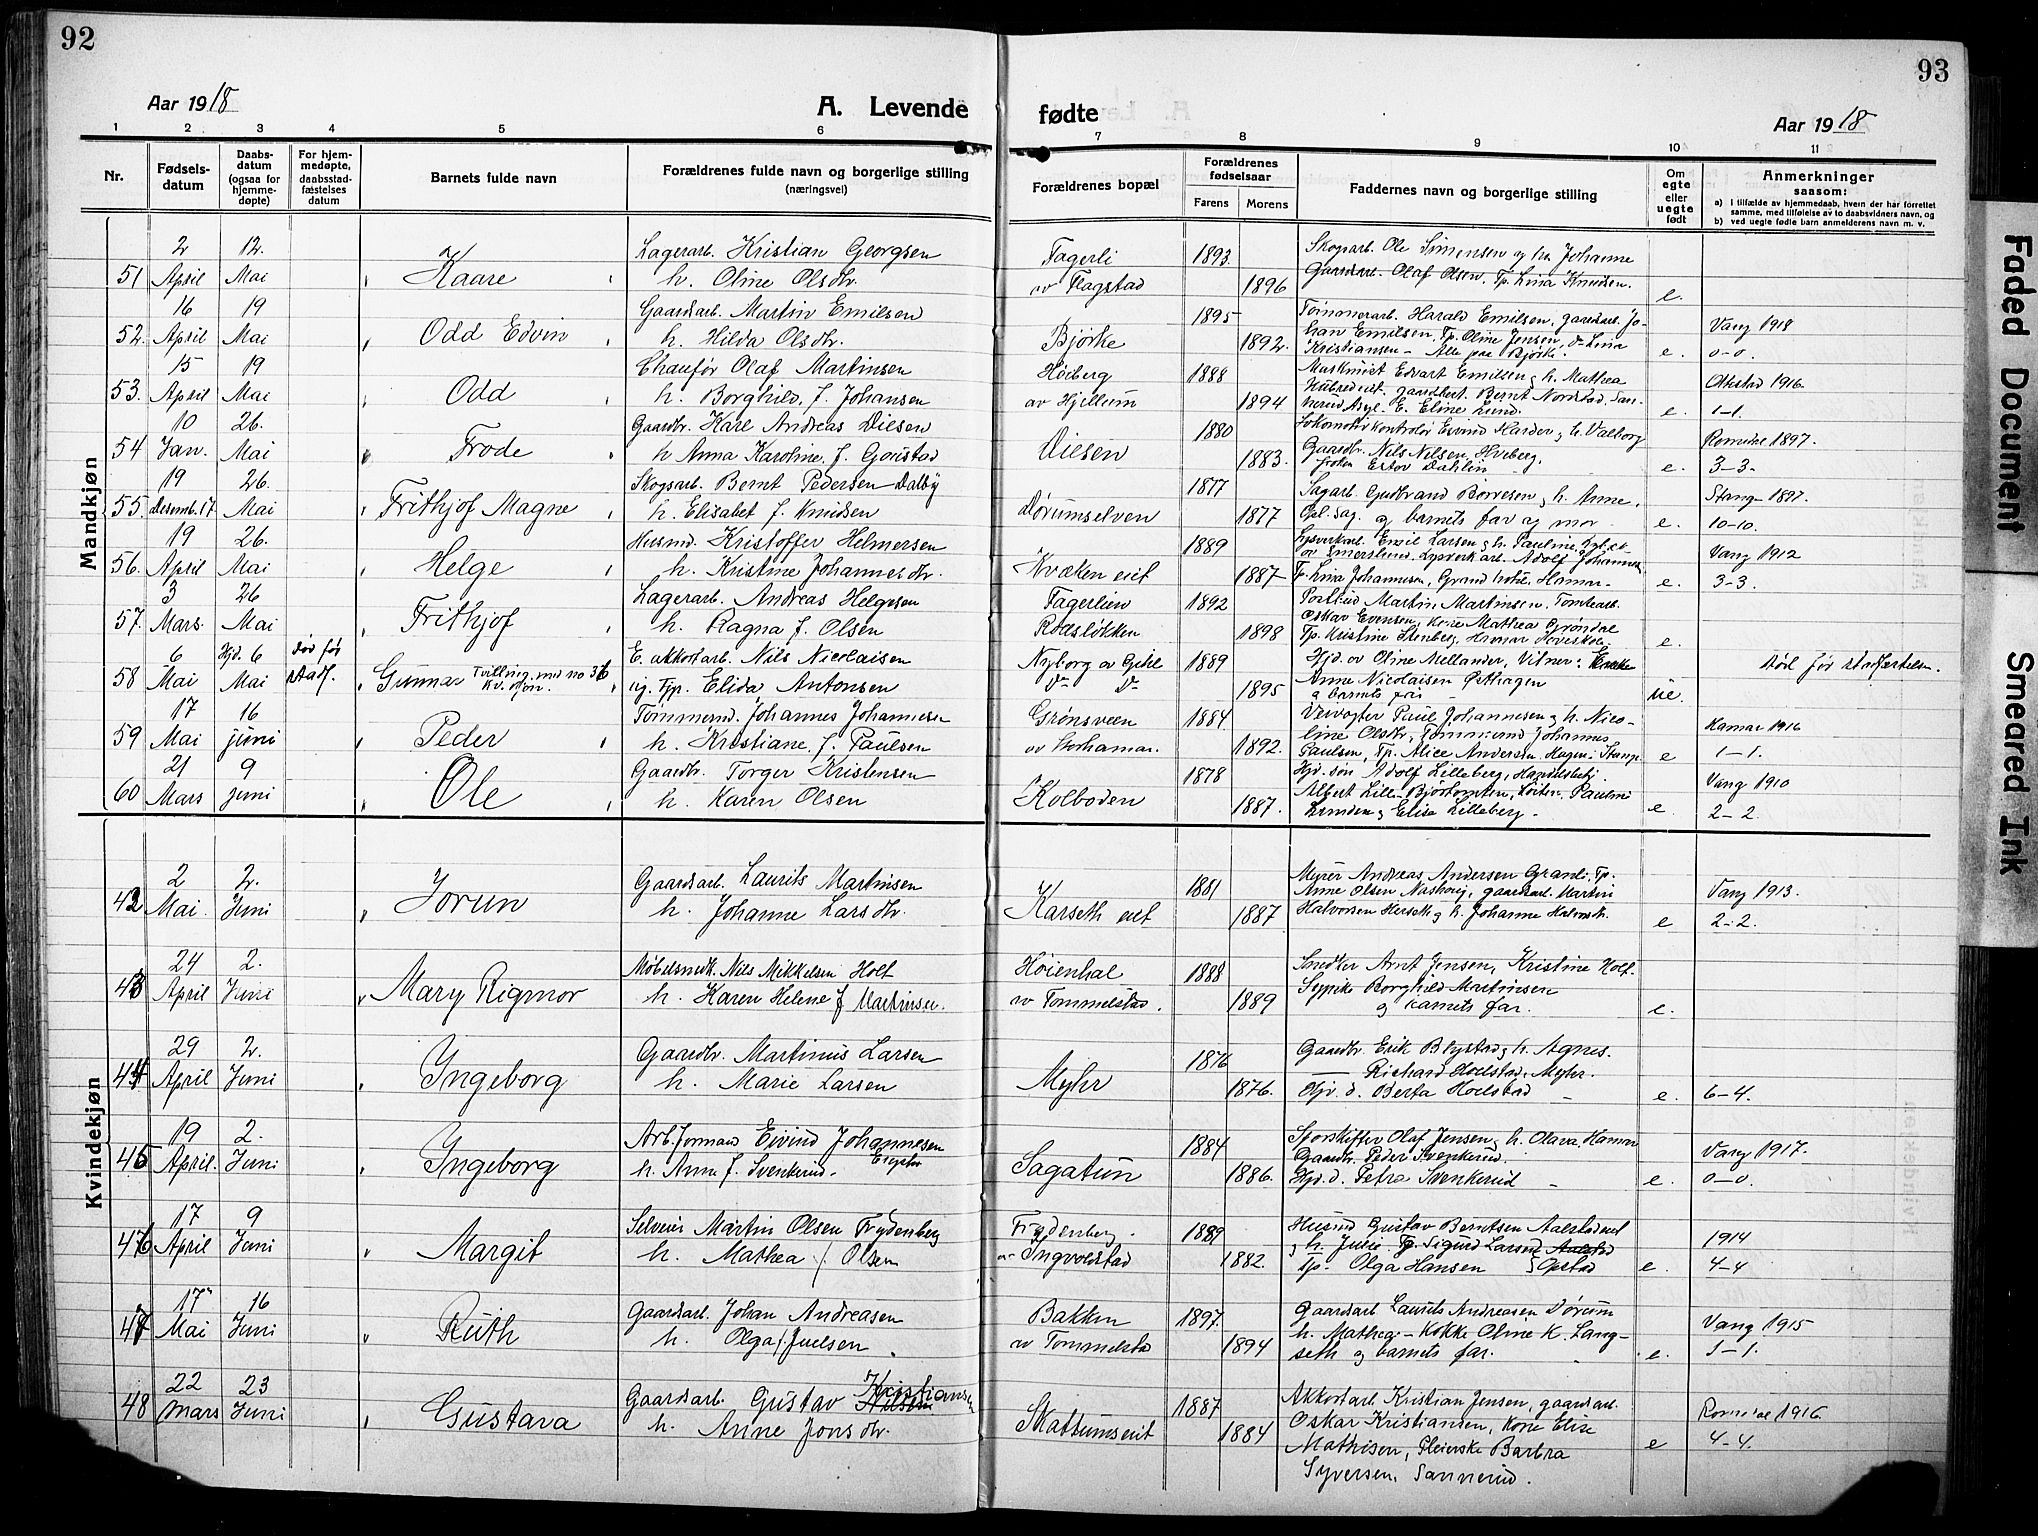 92
93
Aar 1918
A. Levende fødte
Aar 1918
1 2 3 4 5 6 7 8 9 10 11
Nr.
Fødsels-
datum
Daabs-
datum
(ogsaa for
hjemme-
døpte)
For hjem-
medøpte,
daabsstad-
fæstelses
datum
Barnets fulde navn
Forældrenes fulde navn og borgerlige stilling
(næringsvei)
Forældrenes bopæl
Forældrenes
fødselsaar
Farens Morens
Faddernes navn og borgerlige stilling
Om
egte
eller
uegte
født
Anmerkninger
saasom:
a) I tilfælde av hjemmedaab, hvem der har forrettet
samme, med tilføielse av to daabsvidners navn, og
b) ved uegte fødte barn anmelderens navn m. v.
Mandkjøn
2 12. Lagerarb. Kristian Georgsen Fagerli 1893. Skogsarb. Ole Simensen og h. Johanne
51 April Mai Kaare h. Oline Olsdtr. av Flagstad 1896 Gaardsarb. Olaf Olsen. Tp. Lina Knudsen. e.
16 19 Gaardsarb. Martin Emilsen 1895 Tømmerarb. Harald Emilsen, gaardsarb. Jo-
52. April Mai Odd Edvin h. Hilda Olsdtr. Bjørke 1892. han Emilsen, Tp. Oline Jensen, do Lina e. Vang 1918
Kristiansen - Alle paa Bjørke. 0-0.
15 19 Chauför Olaf Martinsen Høiberg 1888 Maskinist Edvart Emilsen h. Mathea
53. April Mai Odd h. Borghild, f. Johansen av Hjellum 1894 Bernt Nordstad, San-
nerud Asyl. E. Eline Lund. e. Ottestad 1916. 1-1.
10 26. Gaardbr. Karl Andreas Dielsen 1880 Lokomotivkontrolør Eivind Harder og h. Valborg
54 Jan. Mai Frode h Anna Karoline, f. Gaustad 1883. Gaardbr. Nils Nilsen, Hveberg. Romedal 1897.
frøken Ester Dahlin e. 3-3.
19 26. Skogsarb. Bernt Pedersen Dalby 1877 Sagarb. Gudbrand Børresen og h. Anne,
55. Desemb. 17 Mai Frithjof Magne h. Elisabet f. Knudsen Dørumselven 1877 og barnets far og mor e. Stange 1897. 10-10.
19 26. Husmd. Kristoffer Helmersen 1889 Emil Larsen og h. Pauline,
56. April Mai Helge h. Kristine Johannesdtr. Kvæken eiet 1887 Adolf Johannes Vang 1912
Tp. Lina Johannesen, Grand hotel, Hamar e. 3-3.
3 26 Lagerarb. Andreas Helgesen Fagerlien 1892 Postbud Martin Martinsen. Tomtearb.
57. Mars. Mai Frithjof h. Ragna f. Olsen Rødsløkken 1898 Oskar Evensen, Kone Mathea Grøndal
Tp. Kristine Stenberg, e.
6 Hjd. 6 død før E. akkortarb. Nils Nicolaisen Nyborg 1889 Hjd. av Oline Mellander, Vitner: Enke
58 Mai Mai stadf. Gunnar Tvilling med no 36 Kv. kjøn. ug. Tjp. Elida Antonsen do do 1895 Anne Nicolaisen Østhagen ue. død før stadfæstelsen.
17 16 Tømmermd. Johannes Johannesen Grønsveen 1884 Veivogter Paul Johannesen og h. Nico-
59 Mai juni Peder h. Kristiane, f. Paulsen av Storhamar. 1892. line Olsdtr, Tømmermd Johannes Hamar 1916
Paulsen, Tp. Alice Andersen e 1-1.
21 9 Gaardbr. Torger Kristensen 1878 Hjd. søn Adolf Lilleberg,
60 Mars juni Ole h. Karen Olsen Kolboden 1887. Albert Løiten. Vang 1910
Linden og Elise Lilleberg - e. 2-2.
Kvindekjøn
2 2. Gaardsarb. Laurits Martinsen 1881 Andreas Andersen Grandi. Tp.
42 Mai. Juni Jorun h. Johanne Larsdtr. Karseth eiet 1887 Anne Olsen gaardsarb. Martin Vang 1913.
Halvorsen Herseth og h. Johanne e 2-2.
24 2. Møbelsnedk. Nils Mikkelsen Holt Høienhal 1888 Snedker Arnt Jensen, Kristine Holt.
43 April Juni Mary Rigmor h. Karen Helene f Martinsen. av Tommelstad. 1889 Sypike Borghild Martinsen
og barnets far. e.
29 2. Gaardbr. Martinus Larsen 1876 Gaardbr. Erik Blystad og h. Agnes.
44 April Juni Ingeborg h. Marie Larsen Myhr 1876. Richard Hoelstad, Myhr.
Hjv. d. Berta Hoelstad e. 6-4.
19 2. Arb. formand Eivind Johannesen 1884 Sporskifter Olaf Jensen og h. Olava, Hamar
45 April. Juni Ingeborg h. Anne f. Svenkerud. Sagatun 1886. Gaardbr. Peder Svenkerud. Vang 1917.
Hjd. d. Petra Svenkerud e. 0-0.
17 9 Selveier Martin Olsen Frydenberg Frydenberg 1889 Husmd Gustav Berntsen
46 April Juni Margit h. Mathea f Olsen av Ingvoldstad 1882. og h. Julie Tp. Sigurd Larsen 1914
Tp. Olga Hansen Opstad e. 4-4
17 16 Gaardsarb. Johan Andreasen Bakken 1897 Gaardsarb Laurits Andreasen Dørum
47 Mai Juni Ruth h. Olga f. Juelsen av Tommelstad 1894 h. Mathea - Kokke Oline K. Lang- Vang 1915
seth og barnets far. e. 1-1.
22 23 Gaardsarb. Gustav Kristiansen 1887 Akkortarb. Kristian Jensen, gaardsarb.
48 mars Juni Gustava h. Anne Jonsdtr. Skattumseiet 1884 Oskar Kristiansen, Kone Elise Romedal 1916
Mathisen, Pleierske Barbra e 4-4.
Syversen, Sannerud.
Faded Document
Smeared Ink